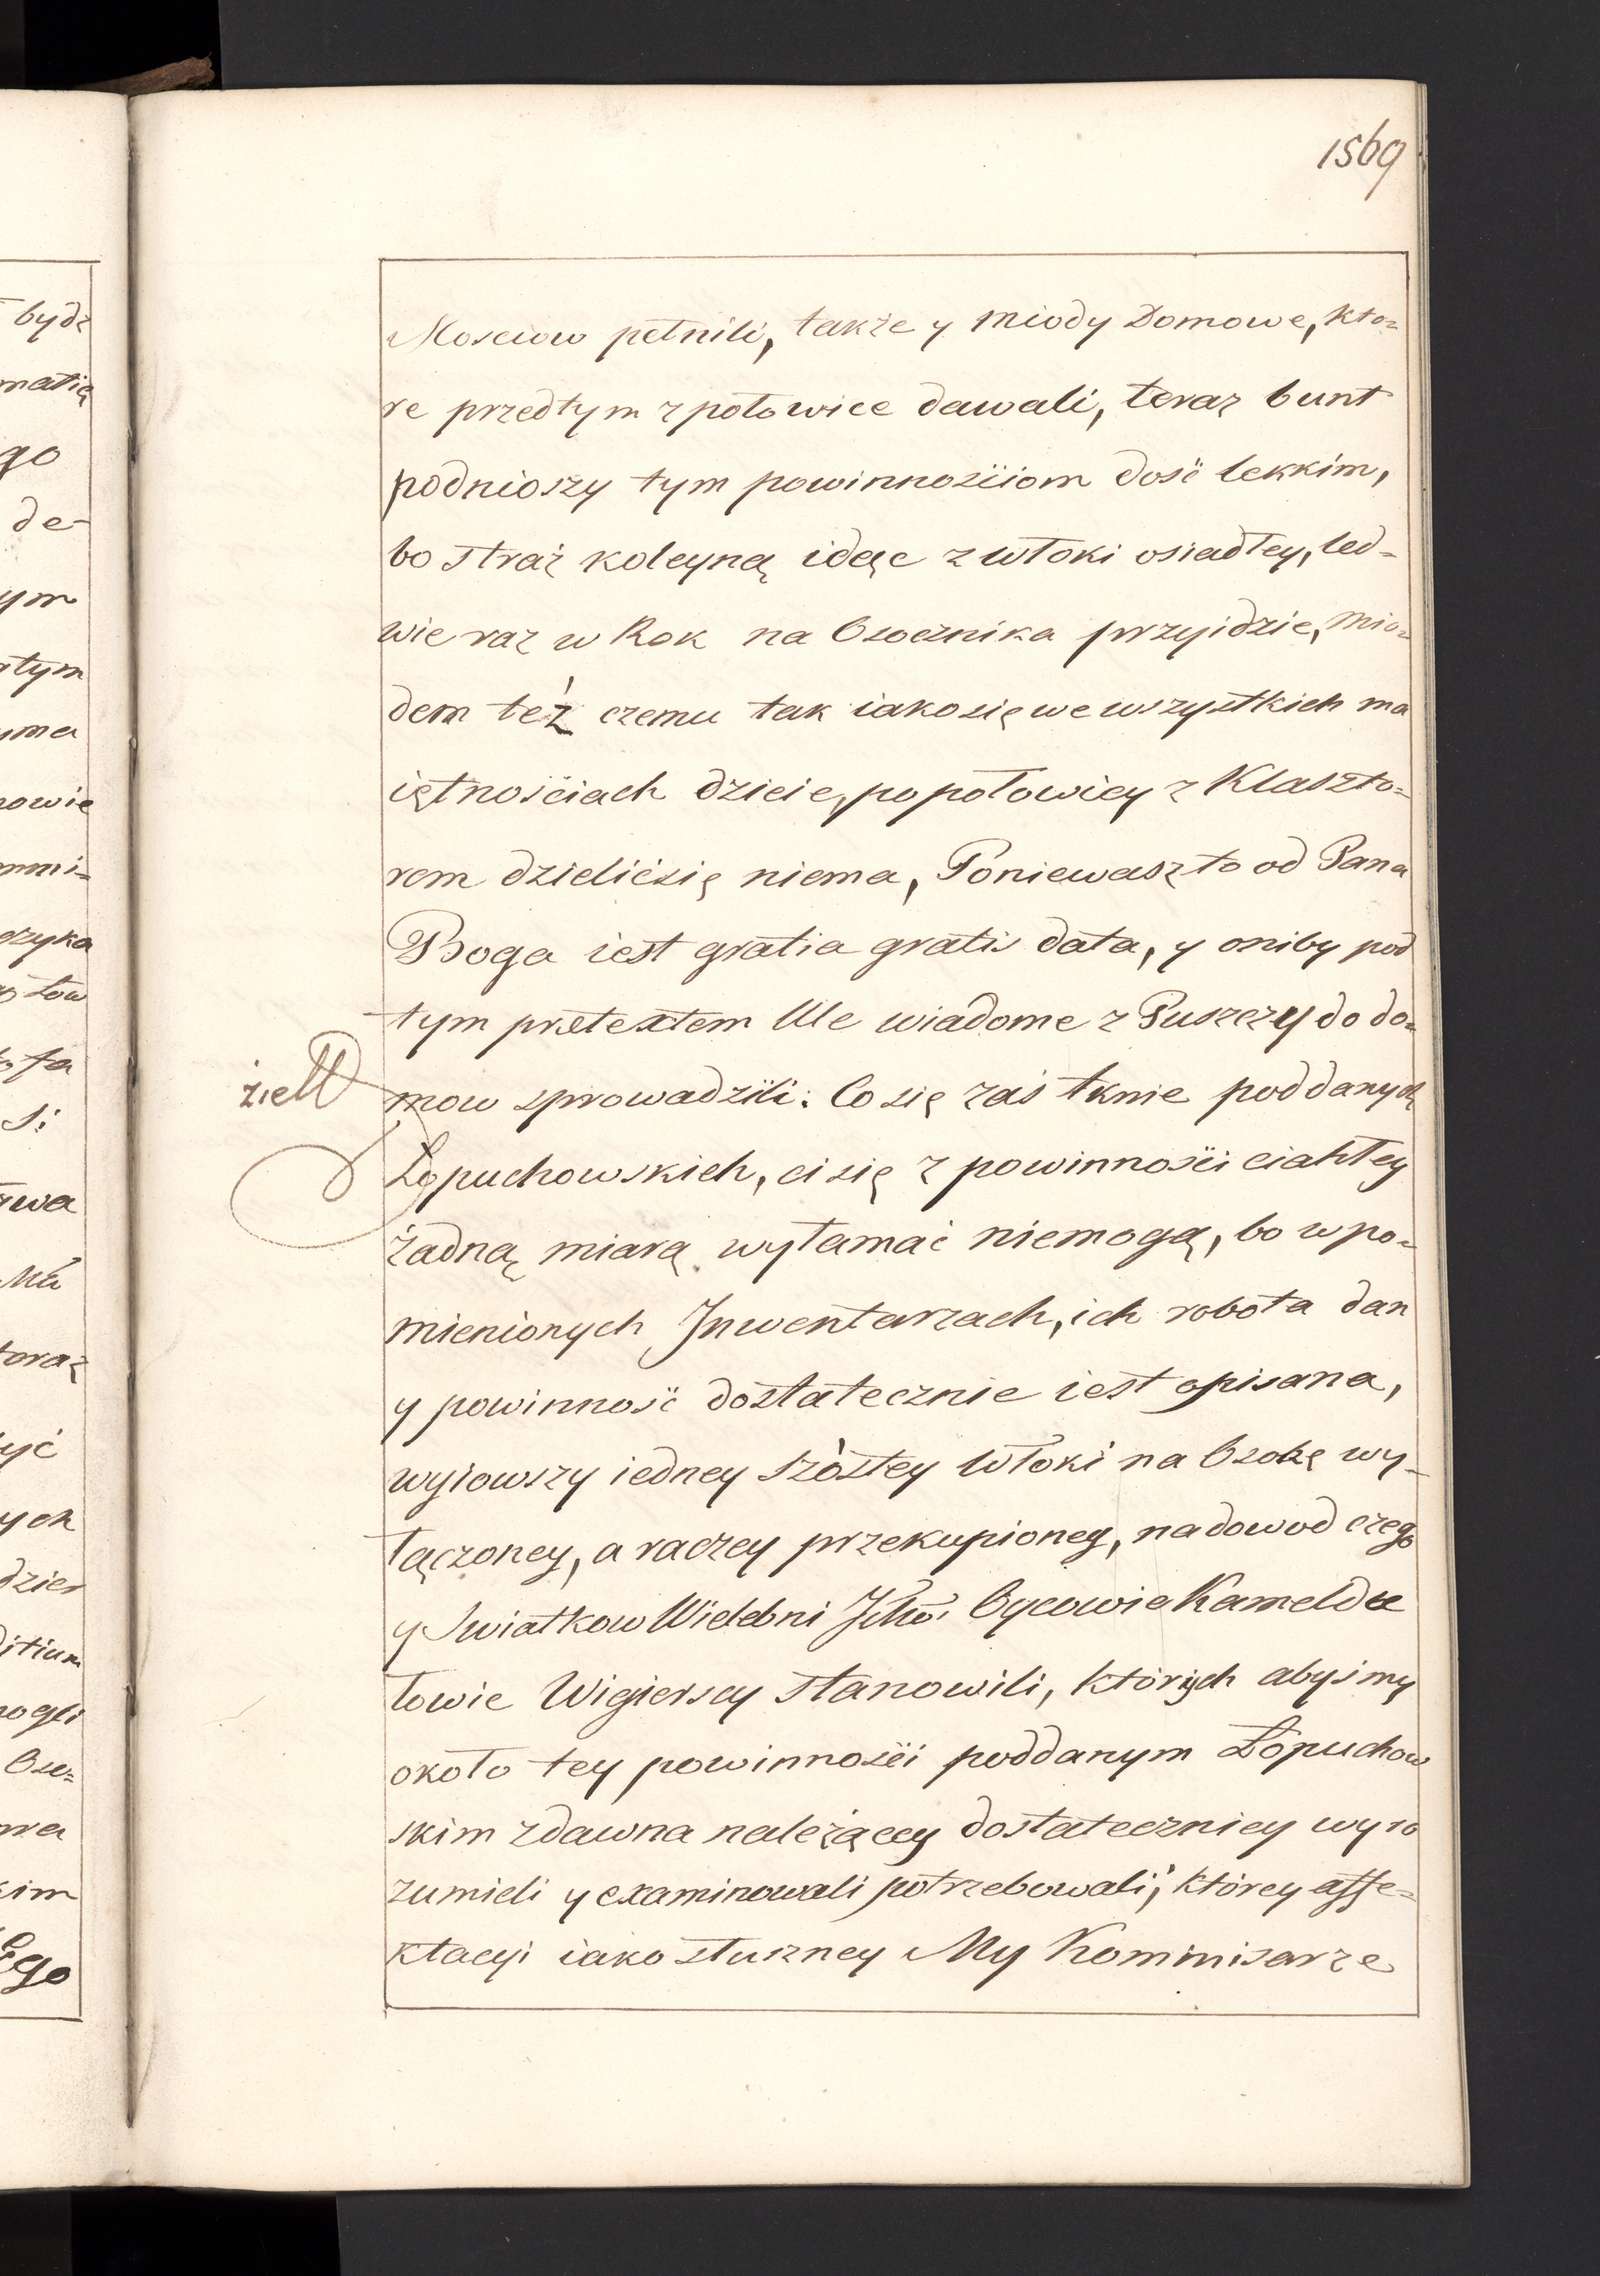 1569
Mosciow pełnili, także y miody Domowe, kto=
re przedtym z połowice dawali, teraz bunt
podnioszy tym powinnościom dość lekkim,
bo straż koleyną idąc z włoki osiadłey, led=
wie raz w Rok na Osocznika przyidzie, mio=
dem też czemu tak iako się we wszystkich ma
iętnościach dzieie, po połowicy z Klaszto=
rem dzielić się niema, Poniewasz to od Pana
Boga iest gratia gratis data, y oniby pod
tym prætextem Ule wiadome z Puszczy do do=
mow sprowadzili. Co się zaś tknie poddanych
Łopuchowskich, ci się z powinności ciahłey
żadną miarą wyłamać niemogą, bo w po=
mienionych Inwentarzach, ich robota dan
y powinność dostatecznie iest opisana,
wyiowszy iedney szóstey Włoki na Osokę wy=
łączoney, a raczey przekupioney, na dowod czego
y Swiatkow Wielebni Ichō Oycowie Kameldu
łowie Wigierscy stanowili, których abyśmy
około tey powinności poddanym Łopuchow
skim zdawna należącey dostateczniey wyro
zumieli y examinowali potrzebowali, którey affe=
ktacyi iako słuszney My Kommisarze
żiełł
bydź
matią
go
de-
ym
atym
yma
nowie
mmi=
Łow
S:
zwa
toraz
yć
ych
dzier
ditium
mogli
Oso=
ma
kim
Ego